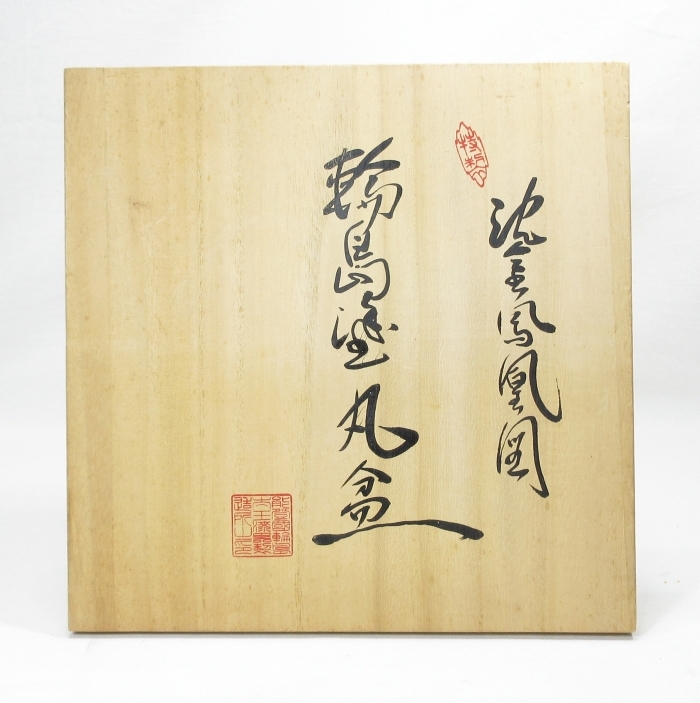 沈金鳳凰図
輪島塗丸盆